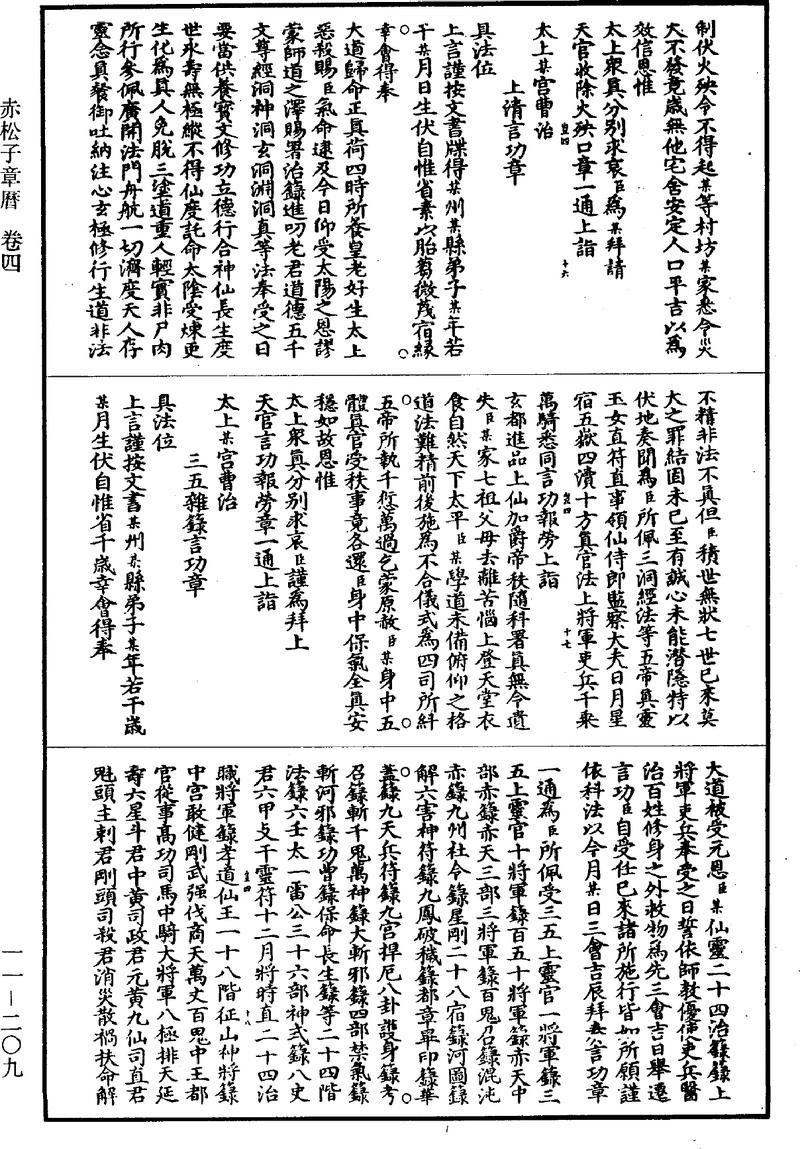 赤松子章曆　卷四
一一－二〇九
制伏火殃令不得起某等村坊某家悉令災
火不發竟歲無他宅舍安定人口平吉以爲
效信恩惟
太上衆眞分別求哀臣爲某拜請
天官收除火殃口章一通上詣
太上某宮曹治
上清言功章
具法位
上言謹按文書牒得某州某縣弟子某年若
干某月日生伏自惟省素以胎葛微茂宿緣
幸會得奉
大道歸命正眞荷四時所養皇老好生太上
惡殺賜臣氣命逮及今日仰受太陽之恩謬
蒙師道之澤賜署治籙進叨老君道德五千
文尊經洞神洞玄洞淵洞眞等法奉受之日
要當供養寶文修功立德行合神仙長生度
世永壽無極縱不得仙度託命太陰受煉更
生化爲眞人免脫三塗道重人輕實非尸肉
所行參佩廣開法門舟航一切濟度天人存
靈念眞餐御吐納注心玄極修行生道非法
不精非法不眞但臣積世無狀七世已來莫
大之罪結固未已至有誠心未能潛隱特以
伏地奏聞爲臣所佩三洞經法等五帝眞靈
玉女直符直事領仙侍郎監察大夫日月星
宿五嶽四瀆十方眞官法上將軍吏兵千乘
萬騎悉同言功報勞上詣
玄都進品上仙加爵帝秩隨科署眞無令遺
失臣某家七祖父母去離苦惱上登天堂衣
食自然天下太平臣某學道未備俯仰之格
道法難精前後施爲不合儀式爲四司所糾
五帝所執千愆萬過乞蒙原赦臣某身中五
體眞官受秩事竟各還臣身中保氣全眞安
穩如故恩惟
太上衆眞分別求哀臣謹爲拜上
天官言功報勞章一通上詣
太上某宮曹治
三五雜籙言功章
具法位
上言謹按文書某州某縣弟子某年若干歲
某月生伏自惟省千歲幸會得奉
大道被受元恩臣某仙靈二十四治籙籙上
將軍吏兵奉受之日誓依師教優使吏兵醫
治百姓修身之外救物爲先三會吉日舉遷
言功臣自受任已來諸所施行皆如所願謹
依科法以今月某日三會吉辰拜奏言功章
一通爲臣所受三五上靈官一將軍籙三
五上靈官十將軍籙百五十將軍籙赤天中
部赤籙赤天三部三將軍籙百鬼召籙混沌
赤籙九州社令籙星剛二十八宿籙河圖籙
解六害神符籙九鳳破穢籙都章畢印籙華
蓋籙九天兵符籙九宮捍厄八卦護身籙考
召籙斬千鬼萬神籙大斬邪籙四部禁氣籙
斬河邪籙功曹籙保命長生籙等二十四階
法籙六壬太一雷公三十六部神式籙八史
君六甲支干靈符十二月將時直二十四治
職將軍籙孝道仙王一十八階征山神將籙
中宮敢健剛武强伐商天萬丈百鬼中王都
官從事高功司馬中騎大將軍八極排天延
壽六星斗君中黄司政君元黄九仙司直君
魁頭主剌君剛頭司殺君消災散禍扶命解